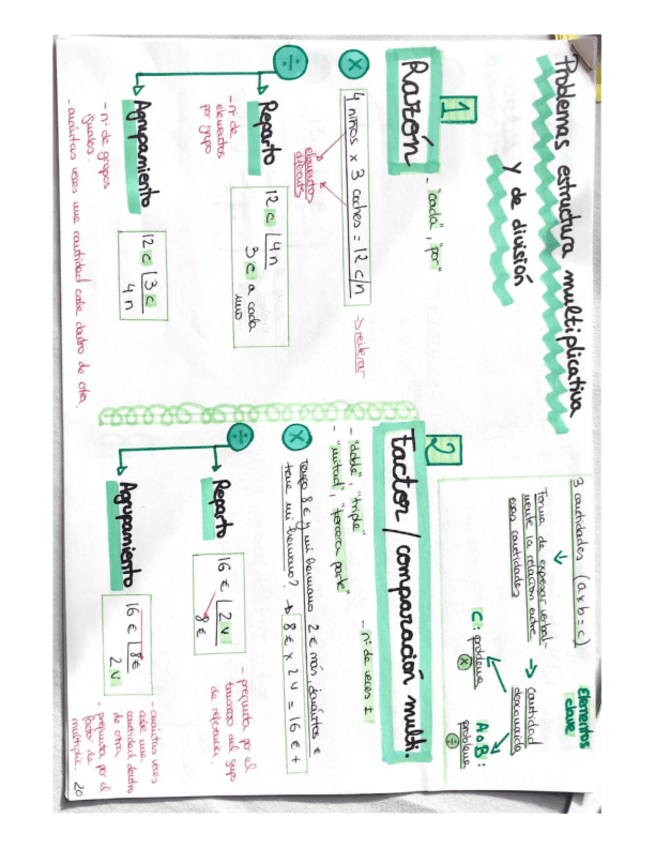 Problemas estructura multiplicativa
y de división
3 cantidades (a x b = c)
Forma de expresar verbal-
mente la relación entre
esas cantidades
Elementos
clave
→ cantidad
desconocida
C: problema
x
A o B:
problema
÷
1
Razón
- "cada", "por"
x
4 niños x 3 coches = 12 c/n
→ reiterar
elementos
÷
Reparto
- nº de
elementos
por grupo
12 c 4 n
3 c a cada
uno
Agrupamiento
- nº de grupos
iguales.
- cuántas veces una cantidad cabe dentro de otra.
12 c 3 c
4 n
2
Factor / comparación multi.
- "doble", "triple"
- "mitad", "tercera parte"
- nº de veces
x
Tengo 8 € y mi hermano 2 € más, ¿cuántos €
tiene mi hermano? → 8 € x 2 v = 16 € +
÷
Reparto
16 € 2 v
8 €
- pregunta por el
tamaño del grupo
de referencia.
Agrupamiento
16 € 8 €
2 v
- cuántas veces
cabe una
cantidad dentro
de otra
- pregunta por el
factor de
multiplic.
20